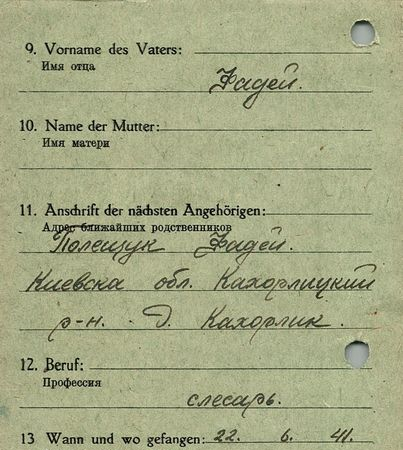 9. Vorname des Vaters:
Имя отца
Фадей.
10. Name der Mutter:
Имя матери
11. Anschrift der nächsten Angehörigen:
Адрес ближайших родственников
Полещук Фадей.
Киевска обл. Кахорлицкий
р-н. Д. Кахорлик.
12. Beruf:
Профессия
слесарь.
13 Wann und wo gefangen: 22. 6. 41.